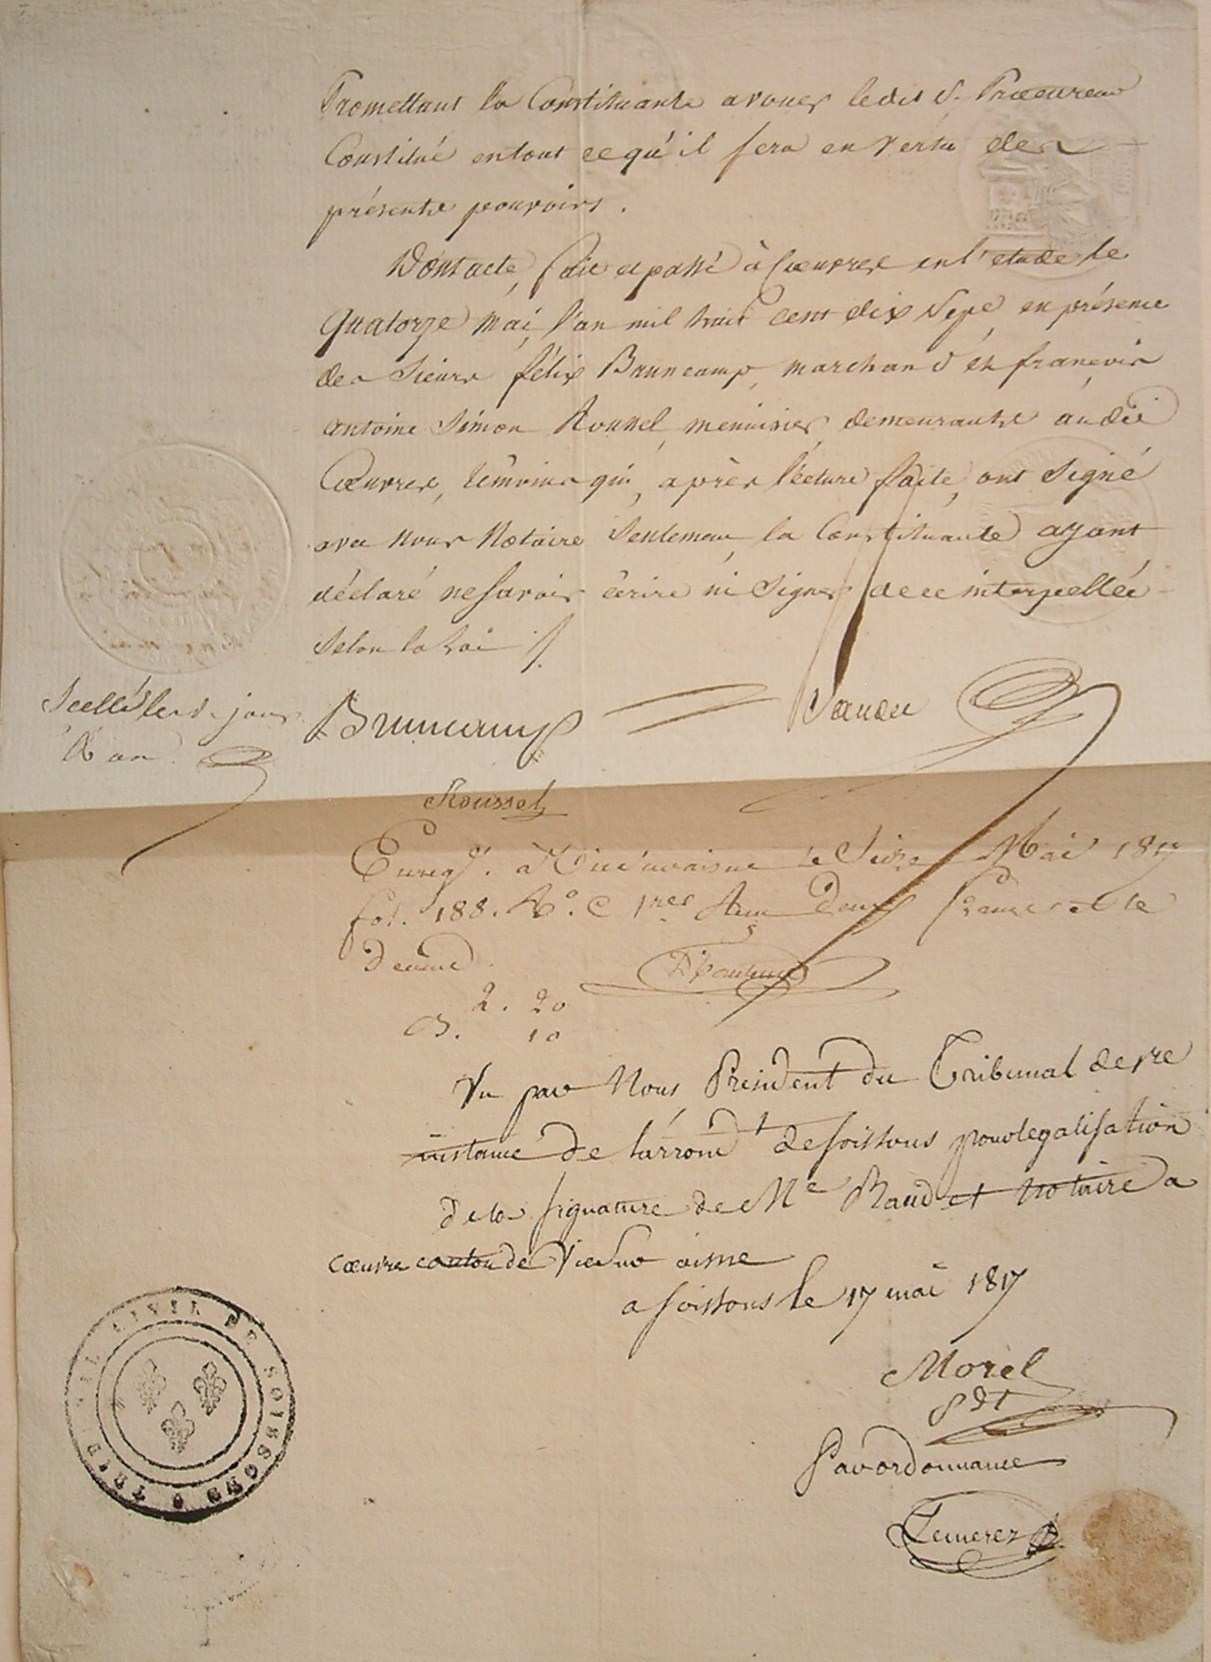 Promettant la Constituante avouer ledit S. Procureur
Constitué en tout ce qu'il fera en vertu des
présents pouvoirs.
Dont acte, fait et passé à Cœuvres en l'étude le
Quatorze Mai, l'an mil huit cent dix Sept, en présence
des Sieurs félix Bruncamp, marchand et françois
antoine Simon Roussel, menuisier, demeurants audit
Cœuvres, témoins qui, après lecture faite, ont Signé
avec Nous Notaire Seulement, la Constituante ayant
déclaré ne savoir écrire ni Signer de ce interpellée
Selon la Loi
Scellé les d. jour
& an
Bruncamp
Roussel
Enreg. à Vic le Seize Mai 1817
fol. 188. R°. C 1res Reçu Deux francs et le
Decime
2. 20
10
Vu par Nous President du Tribunal de 1re
instance de l'arrondt de soissons pour legalisation
de la signature de Me notaire a
cœuvre canton de Vic Sur aisne
a soissons le 17 mai 1817
Morel
pdt
Par ordonnance
TRIBUNAL CIVIL DE SOISSONS